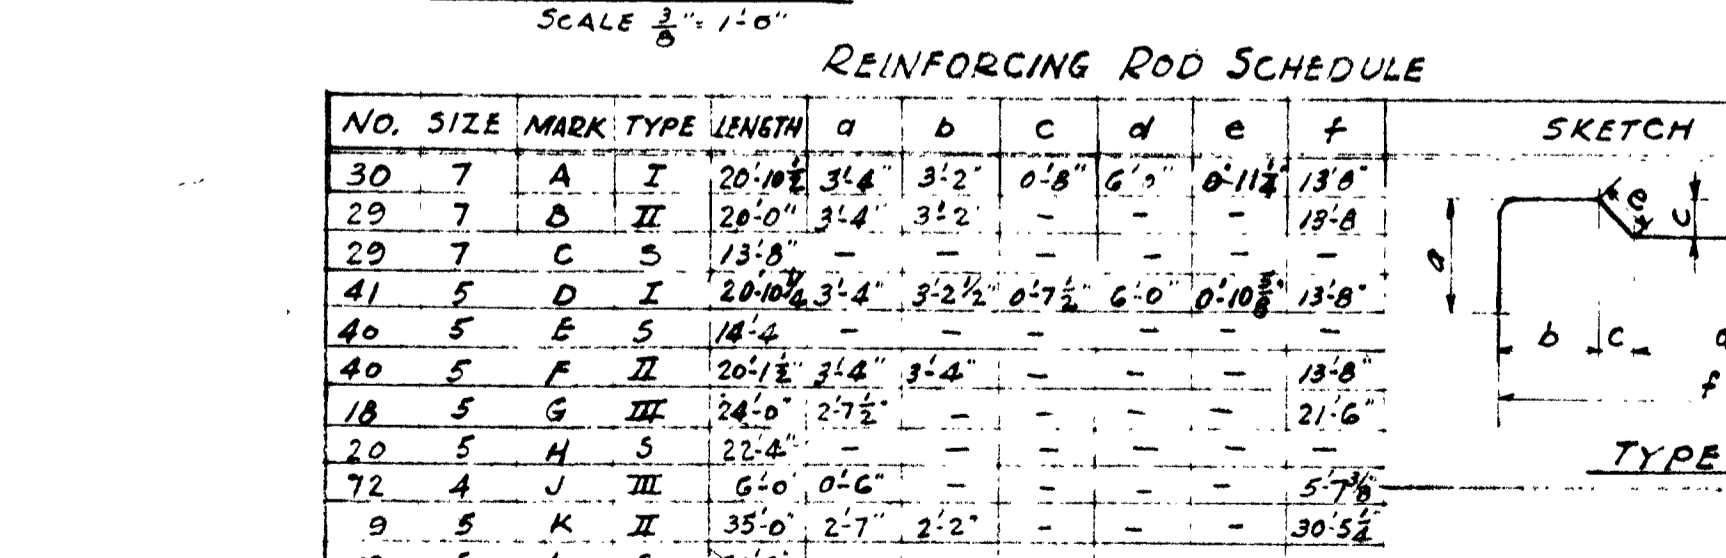 SCALE 3/8" = 1'-0"
REINFORCING ROD SCHEDULE
NO. SIZE MARK TYPE LENGTH a b c d e f SKETCH
30 7 A I 20'-10 1/2 3'-4" 3'-2" 0'-8" 6'-0" 0'-11 1/4" 13'-8"
29 7 B II 20'-0" 3'-4" 3'-2 – – – 13'-8
29 7 C S 13'-8" – – – – – –
41 5 D I 20'-10 1/4 3'-4" 3'-2 1/2" 0'-7 1/2" 6'-0" 0'-10 5/8" 13'-8"
40 5 E S 14'-4 – – – – – –
40 5 F II 20'-1 1/2" 3'-4" 3'-4" – – – 13'-8"
18 5 G III 24'-0" 2'-7 1/2" – – – – 21'-6"
20 5 H S 22'-4" – – – – – –
72 4 J III 6'-0" 0'-6" – – – – 5'-7 3/8"
9 5 K II 35'-0" 2'-7" 2'-2" – – – 30'-5 1/4
e
c
a
b c
f
TYPE